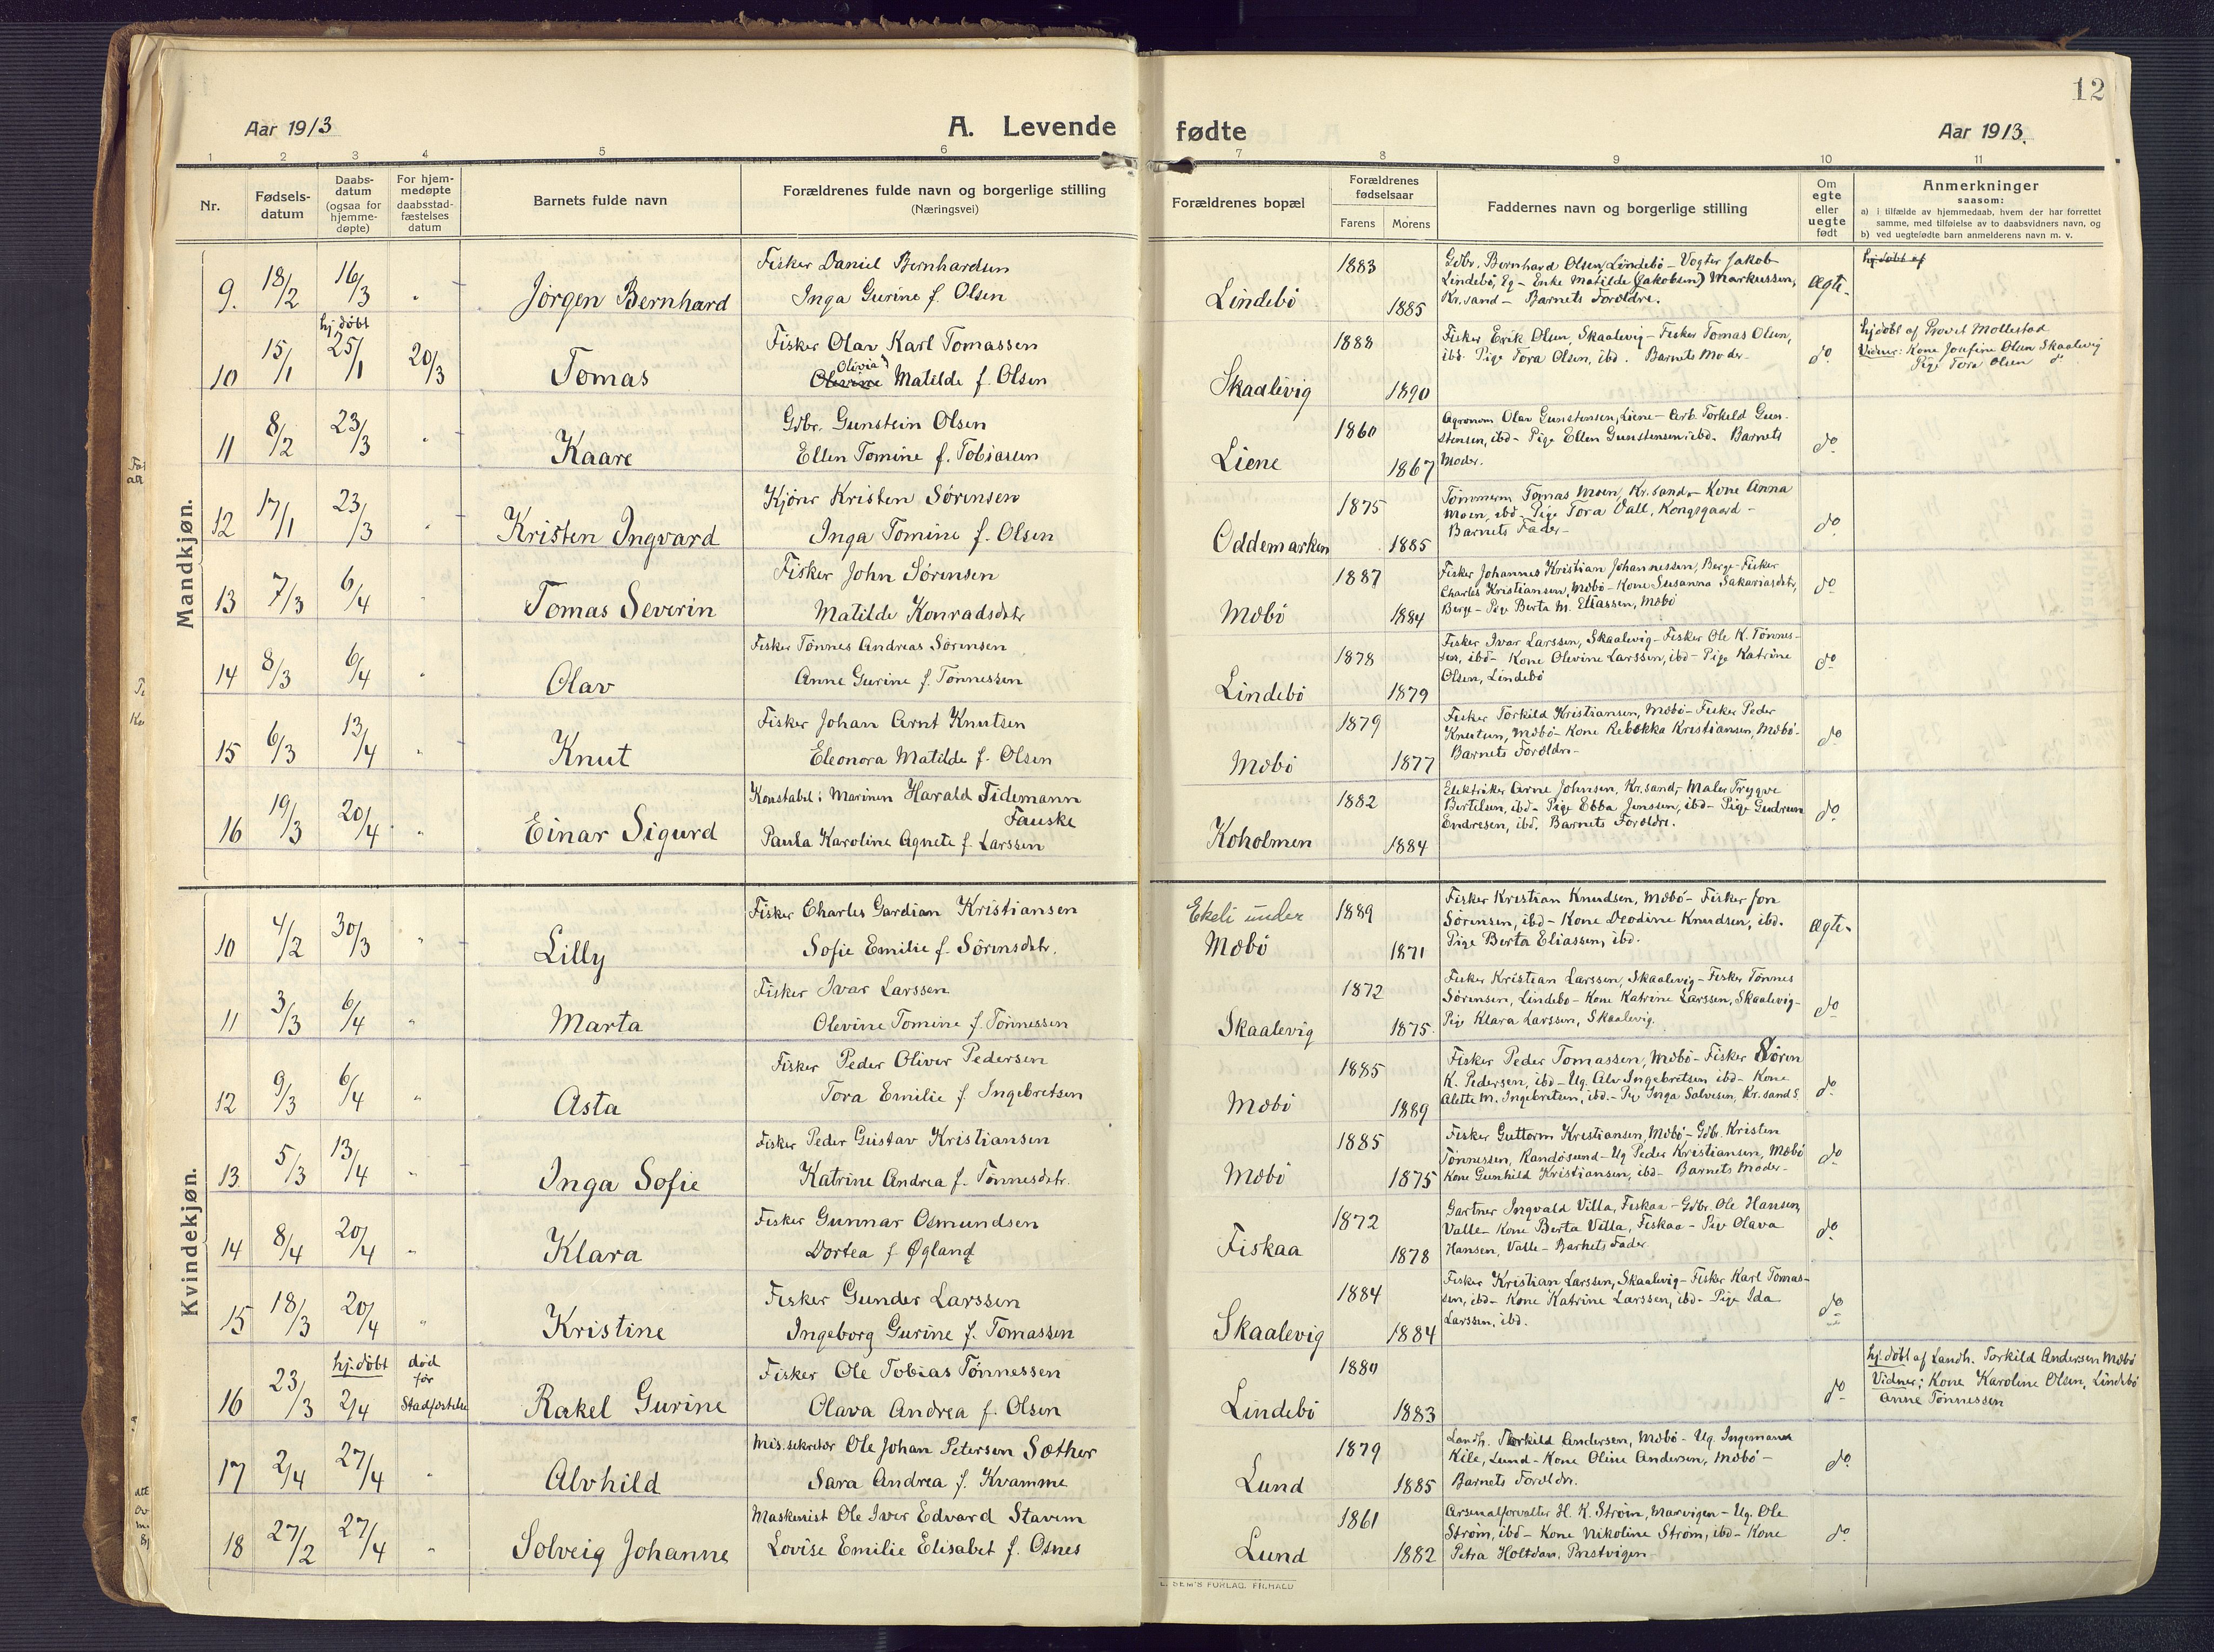 12
Aar 1913
A. Levende fødte
Aar 1913.
1 2 3 4 5 6 7 8 9 10 11
Nr.
Fødsels-
datum
Daabs-
datum
(ogsaa for
hjemme-
døpte)
For hjem-
medøpte
daabsstad-
fæstelses
datum
Barnets fulde navn
Forældrenes fulde navn og borgerlige stilling
(Næringsvei)
Forældrenes bopæl
Forældrenes
fødselsaar
Farens Morens
Faddernes navn og borgerlige stilling
Om
egte
eller
uegte
født
Anmerkninger
saasom:
a) i tilfælde av hjemmedaab, hvem der har forrettet
samme, med tilføielse av to daabsvidners navn, og
b) ved uegtefødte barn anmelderens navn m. v.
Mandkjøn.
9. 18/2 16/3 " Jörgen Bernhard
Fisker Daniel Bernhardsen
Inga Gurine f. Olsen
Lindebö 1883 1885
Gdbr. Bernhard Olsen, Lindebö - Vogter Jakob
Lindebö, Eg - Enke Matilde (Jakobsen) Markussen,
Kr.sand - Barnets Forældre.
Ægte.
hj.döbt af
10 15/1 hj. döbt 25/1 20/3 Tomas
Fisker Olav Karl Tomassen
Olivia
Olevine Matilde f. Olsen
Skaalevig 1888 1890
Fisker Erik Olsen, Skaalevig - Fisker Tomas Olsen,
ibd. Pige Tora Olsen, ibd. Barnets Moder -
do
hjdöbt af Provst Mollestad
Vidner: Kone Josefine Olsen Skaalevig
Pige Tora Olsen do
11 8/2 23/3 " Kaare
Gdbr. Gunstein Olsen
Ellen Tomine f. Tobiasen
Liene 1860 1867
Agronom Olav Gunstensen, Liene - Arb. Torkeld Gun-
stensen, ibd - Pige Ellen Gunstensen, ibd. Barnets
Moder.
do
12 17/1 23/3 " Kristen Ingvard
Kjörer Kristen Sörensen
Inga Tomine f. Olsen
Oddemarken 1875 1885
Tömmerm Tomas Moen, Kr.sand - Kone Anna
Moen, ibd - Pige Tora Vall, Kongsgaard -
Barnets Fader -
do
13 7/3 6/4 " Tomas Severin
Fisker John Sörensen
Matilde Konradsdtr
Mæbö 1887 1884
Fisker Johannes Kristian Johannessen, Berge - Fisker
Charles Kristiansen, Mæbö - Kone Susanna Sakariasdtr,
Berge - Pige Berta M. Eliassen, Mæbö
do
14 8/3 6/4 " Olav
Fisker Tönnes Andreas Sörensen
Anne Gurine f. Tönnessen
Lindebö 1878 1879
Fisker Ivar Larssen, Skaalevig - Fisker Ole K. Tönnes-
sen, ibd - Kone Olevine Larssen, ibd - Pige Katrine
Olsen, Lindebö
do
15 6/3 13/4 " Knut
Fisker Johan Arnt Knutsen
Eleonora Matilde f. Olsen
Mæbö 1879 1877
Fisker Torkild Kristiansen, Mæbö - Fisker Peder
Knutsen, Mæbö - Kone Rebekka Kristiansen, Mæbö -
Barnets Forældre -
do
16 19/3 20/4 " Einar Sigurd
Konstabel i Marinen Harald Tidemann
Fauske
Paula Karoline Agnete f. Larssen
Koholmen 1882 1884
Elektriker Arne Johnsen, Kr.sand, - Maler Trygve
Bertilsen, ibd - Pige Ebba Jenssen, ibd - Pige Gudrun
Endresen, ibd. Barnets Forældre.
do
Kvindekjøn.
10 4/2 30/3 " Lilly
Fisker Charles Gardian Kristiansen
Sofie Emilie f. Sörensdtr.
Ekeli under
Mæbö 1889 1871
Fisker Kristian Knudsen, Mæbö - Fisker Jon
Sörensen, ibd - Kone Deodine Knudsen, ibd.
Pige Berta Eliassen, ibd.
Ægte.
11 3/3 6/4 " Marta
Fisker Ivar Larssen
Olevine Tomine f. Tönnessen
Skaalevig 1872 1875
Fisker Kristian Larssen, Skaalevig - Fisker Tönnes
Sörensen, Lindebö - Kone Katrine Larssen, Skaalevig -
Pige Klara Larssen, Skaalevig.
do
12 9/3 6/4 " Asta
Fisker Peder Oliver Pedersen
Tora Emilie f. Ingebretsen
Mæbö 1885 1889
Fisker Peder Tomassen, Mæbö - Fisker Sören
K. Pedersen, ibd - Ug. Alv Ingebretsen ibd - Kone
Alette M. Ingebretsen, ibd. - Pige Inga Salvesen, Kr.sand S
do
13 5/3 13/4 " Inga Sofie
Fisker Peder Gustav Kristiansen
Katrine Andrea f. Tönnesdtr.
Mæbö 1885 1875
Fisker Guttorm Kristiansen, Mæbö - Gdbr. Kristen
Tönnessen, Randösund - Ug Peder Kristiansen, Mæbö
Kone Gunhild Kristiansen, ibd - Barnets Moder -
do
14 8/4 20/4 " Klara
Fisker Gunnar Osmundsen
Dortea f Øgland
Fiskaa 1872 1878
Gartner Ingvald Villa, Fiskaa - Gdbr. Ole Hansen,
Valle - Kone Berta Villa, Fiskaa - Pige Olava
Hansen, Valle - Barnets Fader
do
15 18/3 20/4 " Kristine
Fisker Gunder Larssen
Ingeborg Gurine f. Tomassen
Skaalevig 1884 1884
Fisker Kristian Larssen, Skaalevig - Fisker Karl Tomas-
sen, ibd - Kone Katrine Larssen, ibd - Pige Ida
Larssen, ibd.
do
16 23/3 hj. döbt 2/4 død før Stadfæstelse Rakel Gurine
Fisker Ole Tobias Tönnessen
Olava Andrea f. Olsen
Lindebö 1880 1883
do
hj. döbt af Landh. Torkild Andersen Mæbö
Vidner: Kone Karoline Olsen, Lindebö
Anne Tönnessen
17 2/4 27/4 " Alvhild
Mis.sekretær Ole Johan Petersen Sæther
Sara Andrea f. Kvamme
Lund 1879 1885
Landh. Torkild Andersen, Mæbö - Ug. Ingemann
Kile, Lund - Kone Oline Andersen, Mæbö -
Barnets Foræld.
do
18 27/2 27/4 " Solveig Johanne
Maskinist Ole Iver Edvard Stavem
Lovise Emilie Elisabet f. Osnes
Lund 1861 1882
Arsenalforvalter H. K. Ström, Marvigen - Ug. Ole
Ström, ibd - Kone Nikoline Ström, ibd - Kone
Petra Holtdan, Prestvigen
do